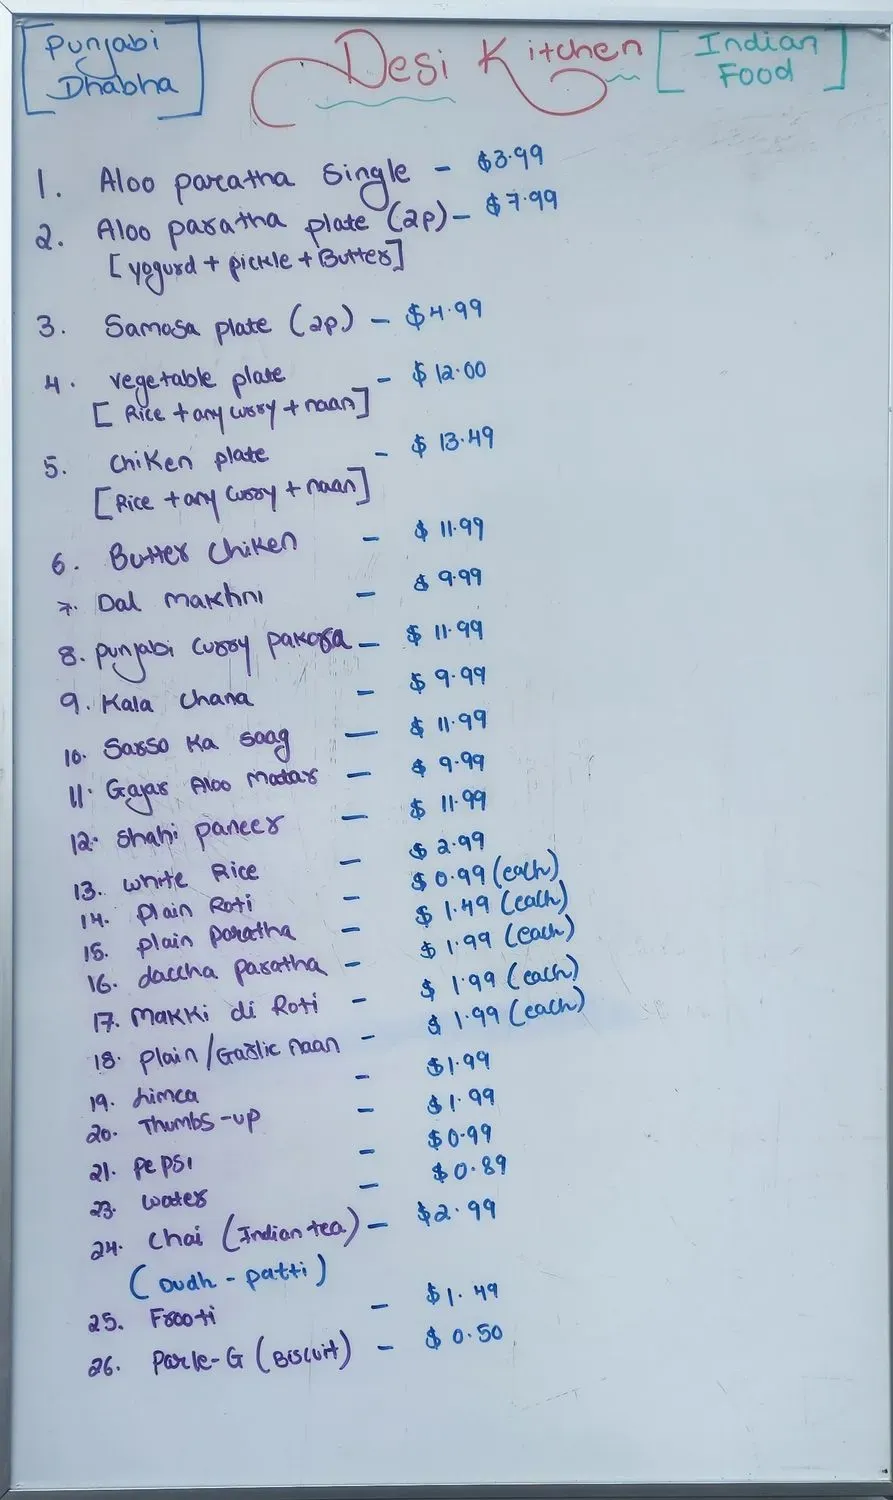 [Punjabi Dhabha]
Desi Kitchen
[Indian Food]
1. Aloo paratha Single - $3.99
2. Aloo paratha plate (2p) - $7.99
[yogurd + pickle + Butter]
3. Samosa plate (2p) - $4.99
4. vegetable plate - $12.00
[Rice + any curry + naan]
5. Chiken plate - $13.49
[Rice + any curry + naan]
6. Butter Chiken - $11.99
7. Dal makhni - $9.99
8. punjabi curry pakora - $11.99
9. Kala chana - $9.99
10. Sarso Ka Saag - $11.99
11. Gajar Aloo Matar - $9.99
12. Shahi paneer - $11.99
13. white Rice - $2.99
14. Plain Roti - $0.99 (each)
15. plain paratha - $1.49 (each)
16. daccha paratha - $1.99 (each)
17. Makki di Roti - $1.99 (each)
18. plain/Garlic naan - $1.99 (each)
19. Limca - $1.99
20. Thumbs-up - $1.99
21. pepsi - $0.99
23. water - $0.89
24. Chai (Indian tea) - $2.99
(Dudh - patti)
25. Frooti - $1.49
26. Parle-G (Biscuit) - $0.50